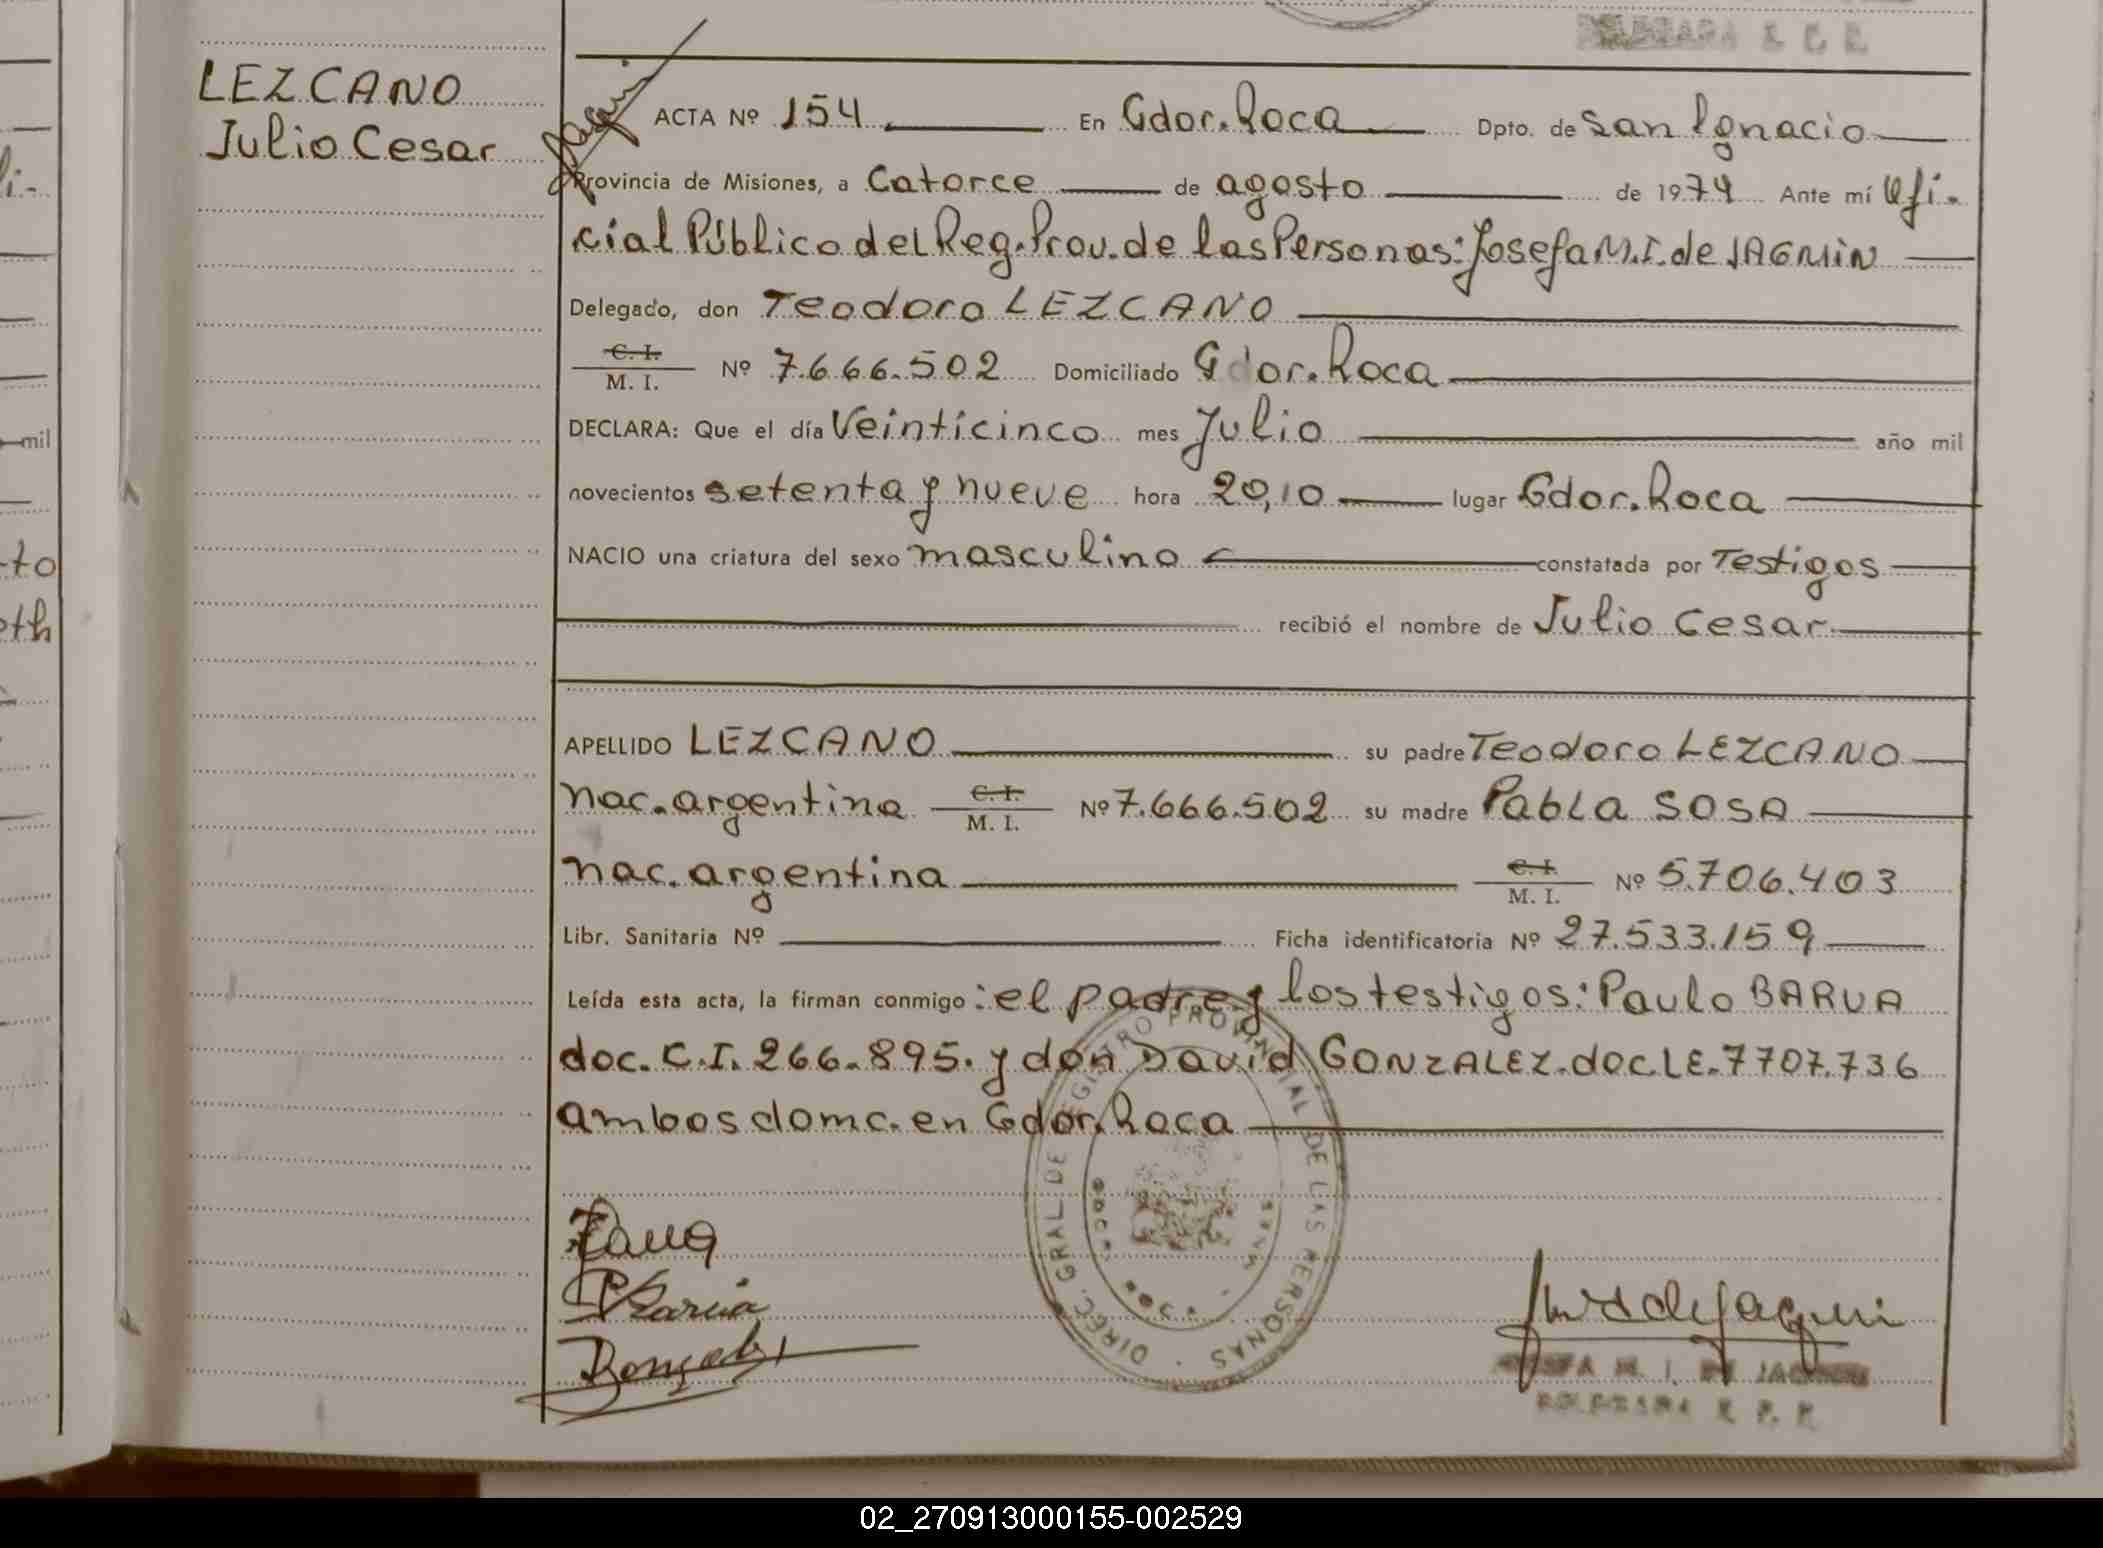 LEZCANO
Julio Cesar
ACTA Nº 154 En Gdor. Roca Dpto. de San Ignacio
Provincia de Misiones, a Catorce de agosto de 1979 Ante mí Ofi-
cial Público del Reg. Prov. de las Personas: Josefa M. I. de JAGMIN
Delegado, don Teodoro LEZCANO
C. I.
M. I. Nº 7.666.502 Domiciliado Gdor. Roca
DECLARA: Que el día Veinticinco mes Julio año mil
novecientos setenta y nueve hora 20,10 lugar Gdor. Roca
NACIO una criatura del sexo masculino constatada por Testigos
recibió el nombre de Julio Cesar
APELLIDO LEZCANO su padre Teodoro LEZCANO
nac. argentina C. I.
M. I. Nº 7.666.502 su madre Pabla SOSA
nac. argentina C. I.
M. I. Nº 5.706.403
Libr. Sanitaria Nº Ficha identificatoria Nº 27.533.159
Leída esta acta, la firman conmigo: el padre y los testigos: Paulo BARUA
doc. C.I. 266.895. y don David GONZALEZ. doc. L.E. 7707.736
ambos domc. en Gdor. Roca
DIREC. GRAL DE REGISTRO PROVINCIAL DE LAS PERSONAS
JOSEFA M. I. DE JAGMIN
DELEGADA R. P. P.
mil
to
eth
02_270913000155-002529